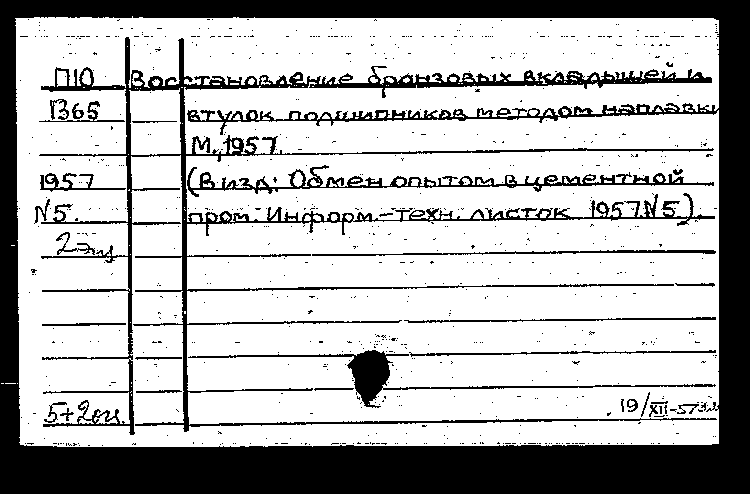 П10 Восстановление бронзовых вкладышей и
1365 втулок подшипников методом наплавки
М., 1957.
1957 (В изд: Обмен опытом в цементной
N5. пром. Информ.-техн. листок 1957.N5).
2 экз
19/XII-57